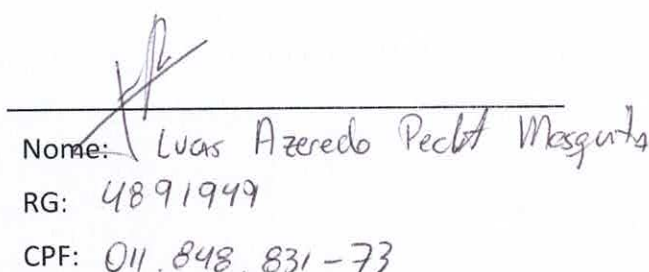 Nome: Lucas Azeredo Mesquita
RG: 4891949
CPF: 011.848.831-73